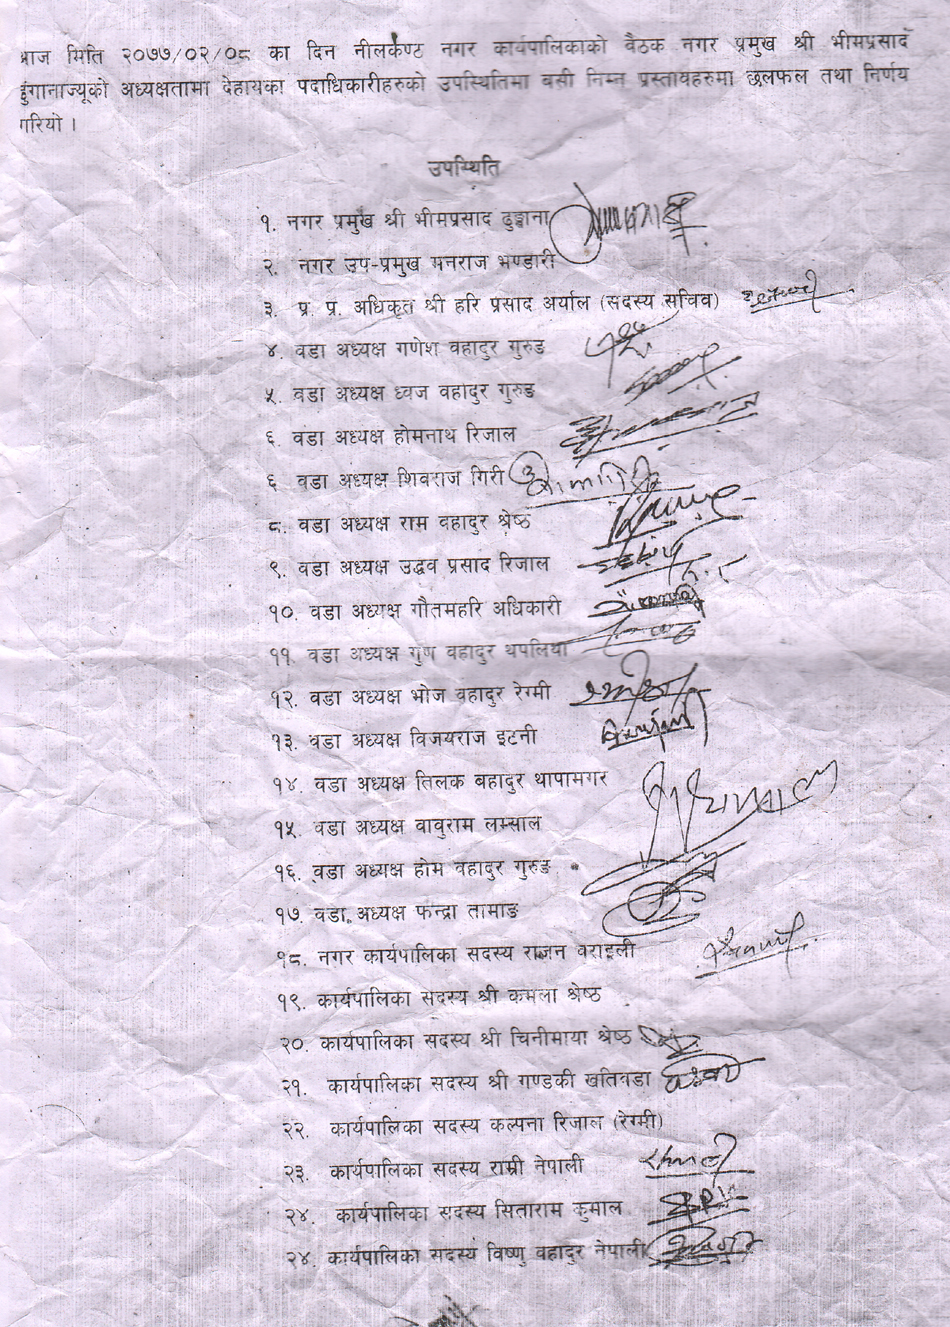 आज मिति २०७७/०२/०८ का दिन नीलकण्ठ नगर कार्यपालिकाको बैठक नगर प्रमुख श्री भीमप्रसाद
ढुंगानाज्यूको अध्यक्षतामा देहायका पदाधिकारीहरुको उपस्थितिमा वसी निम्न प्रस्तावहरुमा छलफल तथा निर्णय
गरियो ।
उपस्थिति
१. नगर प्रमुख श्री भीमप्रसाद ढुङ्गाना
२. नगर उप-प्रमुख मनराज भण्डारी
३. प्र. प्र. अधिकृत श्री हरि प्रसाद अर्याल (सदस्य सचिव)
४. वडा अध्यक्ष गणेश वहादुर गुरुङ
५. वडा अध्यक्ष ध्वज वहादुर गुरुङ
६. वडा अध्यक्ष होमनाथ रिजाल
६ वडा अध्यक्ष शिवराज गिरी
८. वडा अध्यक्ष राम वहादुर श्रेष्ठ
९. वडा अध्यक्ष उद्धव प्रसाद रिजाल
१०. वडा अध्यक्ष गौतमहरि अधिकारी
११. वडा अध्यक्ष गुण वहादुर थपलिया
१२. वडा अध्यक्ष भोज वहादुर रेग्मी
१३. वडा अध्यक्ष विजयराज इटनी
१४. वडा अध्यक्ष तिलक बहादुर थापामगर
१५. वडा अध्यक्ष वावुराम लम्साल
१६. वडा अध्यक्ष होम वहादुर गुरुङ
१७. वडा अध्यक्ष फन्द्रा तामाङ
१८. नगर कार्यपालिका सदस्य राजन वराइली
१९. कार्यपालिका सदस्य श्री कमला श्रेष्ठ
२०. कार्यपालिका सदस्य श्री चिनीमाया श्रेष्ठ
२१. कार्यपालिका सदस्य श्री गण्डकी खतिवडा
२२. कार्यपालिका सदस्य कल्पना रिजाल (रेग्मी)
२३. कार्यपालिका सदस्य राम्री नेपाली
२४. कार्यपालिका सदस्य सिताराम कुमाल
२४. कार्यपालिका सदस्य विष्णु वहादुर नेपाली